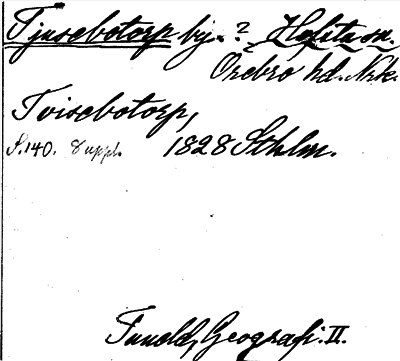 Tjusebotorp by. ? Hofsta sn.
Örebro hd. Nrk.
Tvisebotorp,
S. 140. 8 uppl. 1828 Sthlm.
Tuneld, Geografi. II.